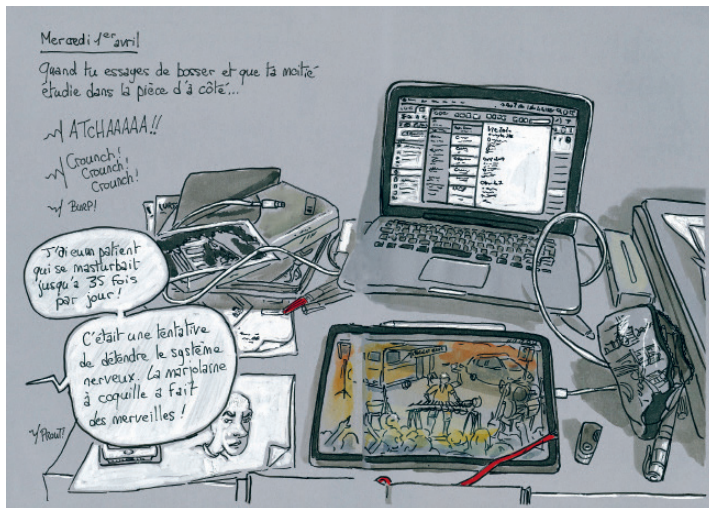 Mercredi 1er avril
Quand tu essayes de bosser et que ta moitié
étudie dans la pièce d'à côté...
ATCHAAAAA!!
Crounch!
Crounch!
Crounch!
BURP!
J'ai eu un patient
qui se masturbait
jusqu'à 35 fois
par jour!
C'était une tentative
de détendre le système
nerveux. La marjolaine
à coquille a fait
des merveilles!
PROUT!